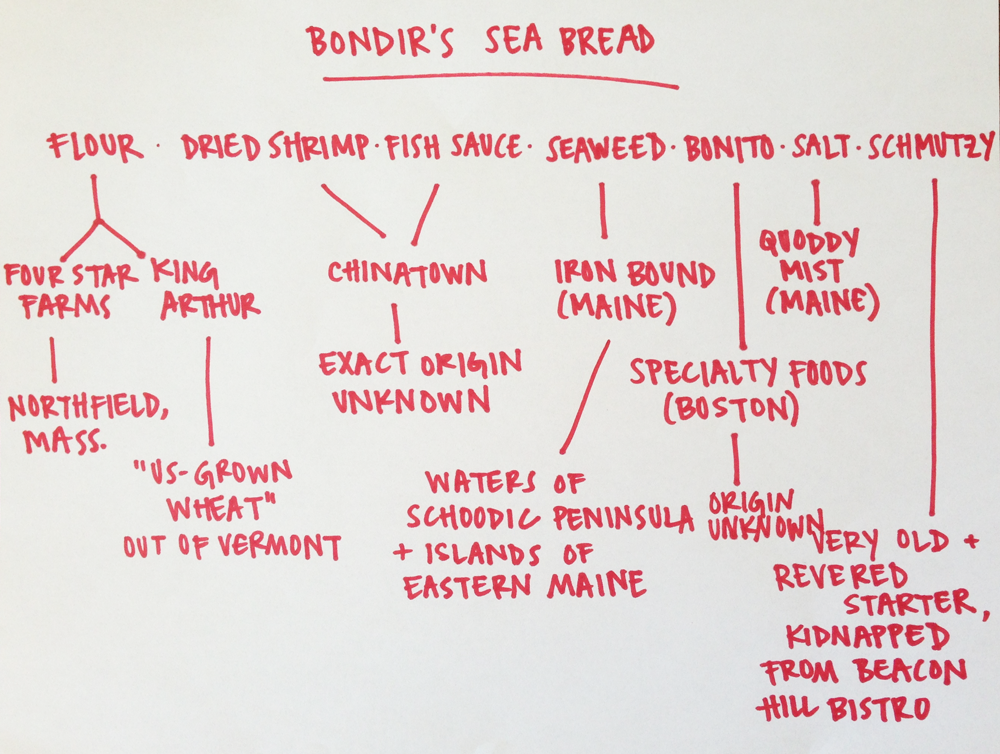 BONDIR'S SEA BREAD
FLOUR · DRIED SHRIMP · FISH SAUCE · SEAWEED · BONITO · SALT · SCHMUTZY
FOUR STAR
FARMS
NORTHFIELD,
MASS.
KING
ARTHUR
"US-GROWN
WHEAT"
OUT OF VERMONT
CHINATOWN
EXACT ORIGIN
UNKNOWN
IRON BOUND
(MAINE)
WATERS OF
SCHOODIC PENINSULA
+ ISLANDS OF
EASTERN MAINE
SPECIALTY FOODS
(BOSTON)
ORIGIN
UNKNOWN
QUODDY
MIST
(MAINE)
VERY OLD +
REVERED
STARTER,
KIDNAPPED
FROM BEACON
HILL BISTRO